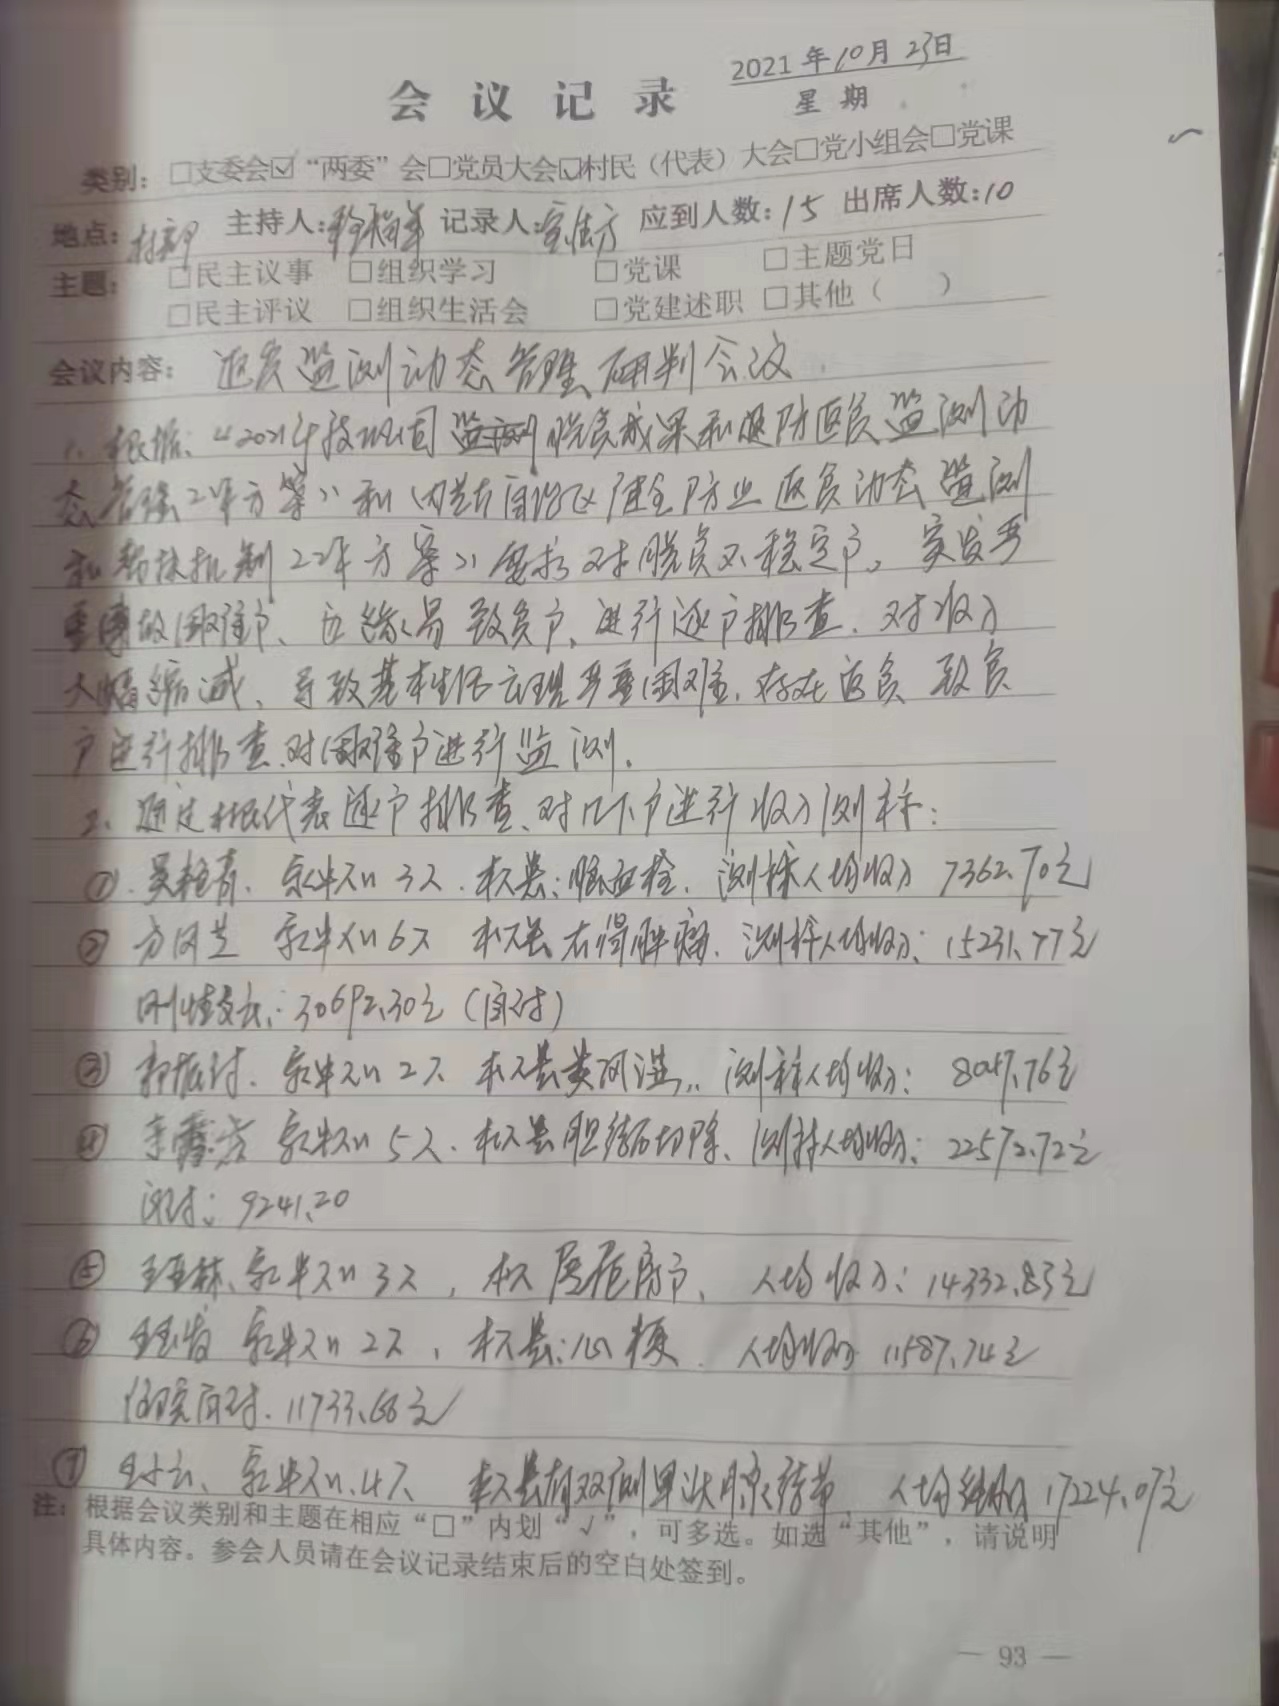 会议记录
2021年10月23日
星期
类别：□支委会☑“两委”会□党员大会☑村民（代表）大会□党小组会□党课
地点：村部 主持人： 记录人： 应到人数：15 出席人数：10
主题：□民主议事 □组织学习 □党课 □主题党日
□民主评议 □组织生活会 □党建述职 □其他（ ）
会议内容：返贫监测动态管理研判会议
1、根据：《2021年 巩固 脱贫成果和 防返贫监测动
态管理工作方案》和《内蒙古自治区健全防止返贫动态监测
和帮扶机制工作方案》要求对脱贫不稳定户、突发严
重 困难户、边缘易致贫户，进行逐户排查，对收入
大幅缩减，导致基本生活出现严重困难，存在返贫致贫
户进行排查，对困难户进行监测。
2、通过村民代表逐户排查、对以下户进行收入测算：
① 家中人口3人，本人患：脑血栓，测算人均收入 7362.70元
② 家中人口6人 本人患 测算人均收入：15231.77元
刚性支出：30692.30元（自付）
③ 家中人口2人 本人患类风湿，测算人均收入： 8047.76元
④ 家中人口5人，本人患胆结石切除、测算人均收入：22572.72元
自付：9241.20
⑤ 家中人口3人，本人属危房户、人均收入：14332.83元
⑥ 家中人口2人，本人患：心梗 人均收入 11587.74元
住院自付．11733.66元
⑦ 家中人口4人 本人患有双侧甲状腺结节、人均纯收入17224.07元
注：根据会议类别和主题在相应“□”内划“√”，可多选。如选“其他”，请说明
具体内容。参会人员请在会议记录结束后的空白处签到。
— 93 —